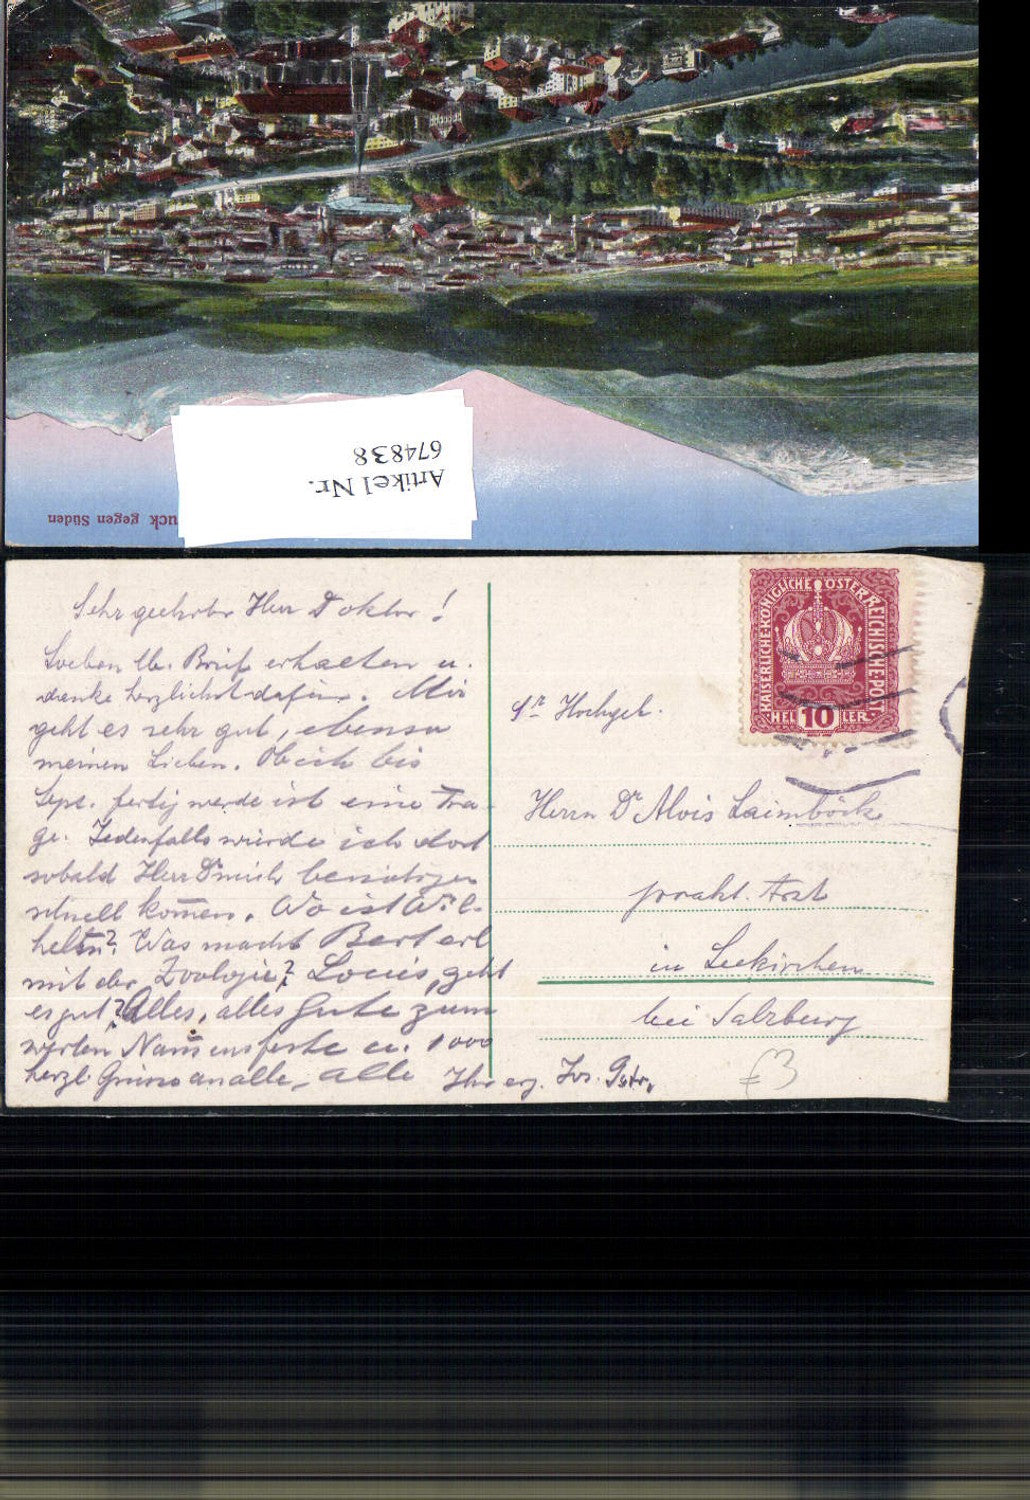 Artikel Nr.
674838
uck gegen Süden
Sehr geehrter Herr Doktor!
Soeben lb. Brief erhalten u.
danke herzlichst dafür. Mir
geht es sehr gut, ebenso
meinen Lieben. Ob ich bis
Sept. fertig werde ist eine Fra-
ge. Jedenfalls würde ich dort
sobald Herr Dr mich benötigen
schnell kommen. Wo ist Wil-
helm? Was macht Berterl
mit der Zoologie? Louis, geht
es gut? Alles, alles Gute zum
werten Namensfeste u. 1000
herzl. Grüsse an alle, alle
Ihr erg. Jos.
KAISERLICHE KÖNIGLICHE ÖSTERREICHISCHE POST
HELLER
10
Sr Hochgeb.
Herrn Dr Alois Laimböck
prakt. Arzt
in Seekirchen
bei Salzburg
£3